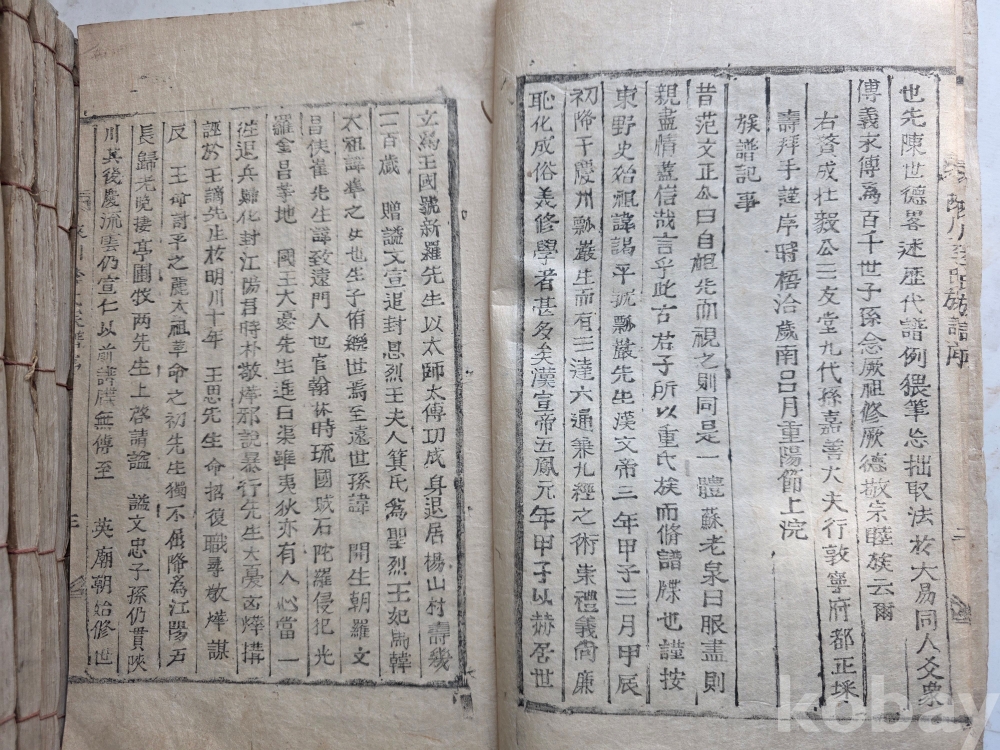 陜川李氏族譜序
二
也先陳世德畧述歷代譜例猥筆忘拙取法於大易同人爻衆
傳義永傳爲百十世子孫念厥祖修厥德敬宗睦族云爾
右贊成壯毅公三友堂九代孫嘉善大夫行敦寧府都正埰
壽拜手謹序時梧洽歲南呂月重陽節上浣
族譜記事
昔范文正公曰自祖先而視之則同是一體蘇老泉曰眼盡則
親盡情盡信哉言乎此古君子所以重氏族而脩譜牒也謹按
東野史始祖諱謁平號瓢巖先生漢文帝三年甲子三月甲辰
初降于慶州瓢巖生而有三達六通兼九經之術崇禮義尙廉
恥化成俗美修學者甚多矣漢宣帝五鳳元年甲子以赫居世
立爲王國號新羅先生以太師太傅功成身退居楊山村壽幾
二百歲 贈謚文宣追封恩烈王夫人箕氏爲聖烈王妃馬韓
太祖諱準之女也生子侑繼世焉至遠世孫諱 開生朝羅文
昌侯崔先生諱致遠門人也官翰林時琉國賊石陀羅侵犯光
羅金昌等地 國王大憂先生進曰渠雖夷狄亦有人心當一
徃退兵歸化封江陽君時朴敬燁邪說暴行先生大憂 燁搆
誣於王謫先生於明川十年 王思先生命招復職尋敬燁謀
反 王命討平之麗太祖革命之初先生獨不屈降爲江陽戶
長歸老晩棲亭圃牧两先生上啓請謚 謚文忠子孫仍貫陜
川其後慶流雲仍宣仁以前譜牒無傳至 英廟朝始修世
三
kobay